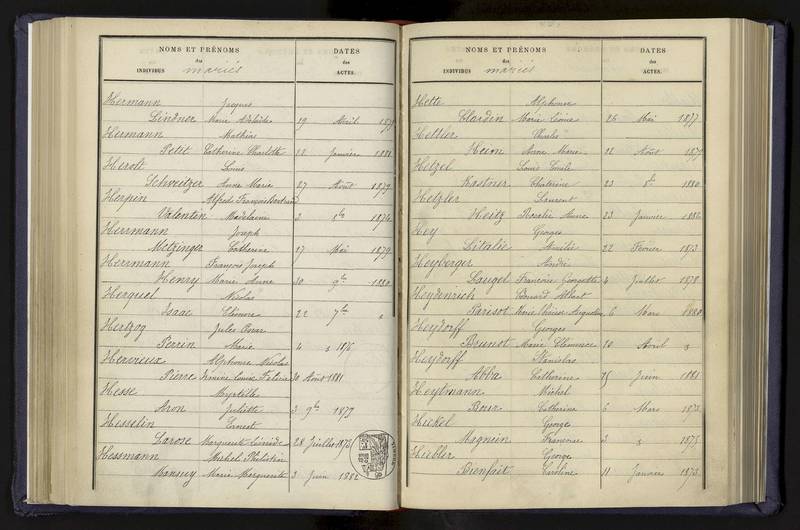 NOMS ET PRÉNOMS DATES
des des
INDIVIDUS mariés ACTES.
Hermann Jacques
Lindner Marie Adélaïde 19 Avril
Hermann Mathias
Petit Catherine Charlotte 22 Janvier 1881
Herolt Louis
Schweitzer Anne Marie 27 Août 1879
Herpin Alfred François
Valentin Madelaine 2 8bre 1874
Herrmann Joseph
Metzinger Catherine 17 Mai 1879
Herrmann François Joseph
Henry Marie Anne 30 9bre 1880
Herquel Nicolas
Isaac 22 7bre "
Hertzog Jules Oscar
Perrin Marie 4
Hervieux Alphonse Nicolas
Pierre 30 Août 1881
Hesse Myrtille
Aron Juliette 3 9bre 1879
Hesselin Ernest
Larose Marguerite 28 Juillet 1876
Hessmann Michel
Mansuy Marie Marguerite 3 Juin 1882
NOMS ET PRÉNOMS DATES
des des
INDIVIDUS mariés ACTES.
Hette Alphonse
Clardin Marie 26 Mai 1877
Hettier Charles
Heim Anne Marie 12 Août
Hetzel Louis Emile
Kastner 23 1880
Hetzler Laurent
Heitz Rosalie Anne 23 Janvier 1886
Hey Georges
Litalie Amélie 22 Février 1873
Heyberger André
Laugel Françoise Georgette 4 Juillet 1878
Heydenrich Edouard Albert
Parisot 6 Mars 1880
Heydorff Georges
Brunot Marie Clémence 10 Avril
Heydorff Stanislas
Abba Catherine 25 Juin 1881
Heytmann Michel
Catherine 6 Mars
Hickel George
Magnien Françoise 2
Hiebler George
Bienfait Caroline 11 Janvier 1873